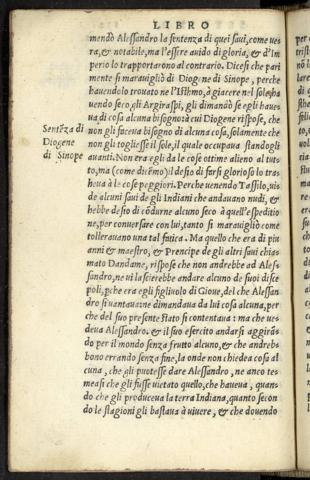 LIBRO
mendò Alessandro la sentenza di quei saui, come ue
ra, & notabile, ma l'essere auido di gloria, & d'Im
perio lo trapportarono al contrario. Dicesi che pari
mente si marauigliò di Diogene di Sinope, perche
hauendolo trouato ne l'Isthmo, à giacere nel sole, ha
uendo seco gli Argiraspi, gli dimandò se egli haue
ua di cosa alcuna bisogno: à cui Diogene rispose, che
non gli faceua bisogno di alcuna cosa, solamente che
non gli togliesse il sole, il quale occupaua standogli
auanti. Non era egli da le cose ottime alieno al tut/
to, ma (come dicemo) il desio di farsi glorioso lo tra/
heua à le cose peggiori. Perche uenendo Tassilo, uis
de alcuni saui de gli Indiani che andauano nudi, &
hebbe desio di cōdurne alcuno seco à quell'espeditio
ne, per conuersare con lui, tanto si marauigliò come
tollerauano una tal fatica. Ma quello che era di piu
anni & maestro, & Prencipe de gli altri saui chia/
mato Dandame, rispose che non andrebbe ad Ales/
sandro, ne ui lascierebbe andare alcuno de suoi disce
poli, pche era egli figliuolo di Gioue, del che Alessan
dro si uantaua: ne dimandaua da lui cosa alcuna, per
che del suo presente stato si contentaua: ma che ue/
deua Alessandro. & il suo esercito andarsi aggirā/
do per il mondo senza frutto alcuno, & che andreb/
bono errando senza fine, la onde non chiedea cosa al
cuna, che gli puotesse dare Alessandro, ne anco tes
mea si che gli fusse uietato quello, che haueua, quan/
do che gli produceua la terra Indiana, quanto secon
do le stagioni gli bastaua à uiuere, & che douendo
Sentēza di
Diogene
di Sinope